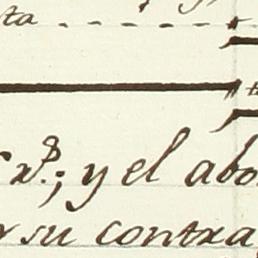 ta
y el abo
su contra